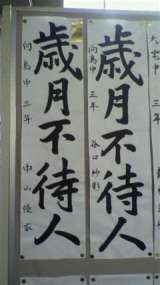 歳月不待人
向島中 三年 谷口紗彩
歳月不待人
向島中 三年 中山優衣